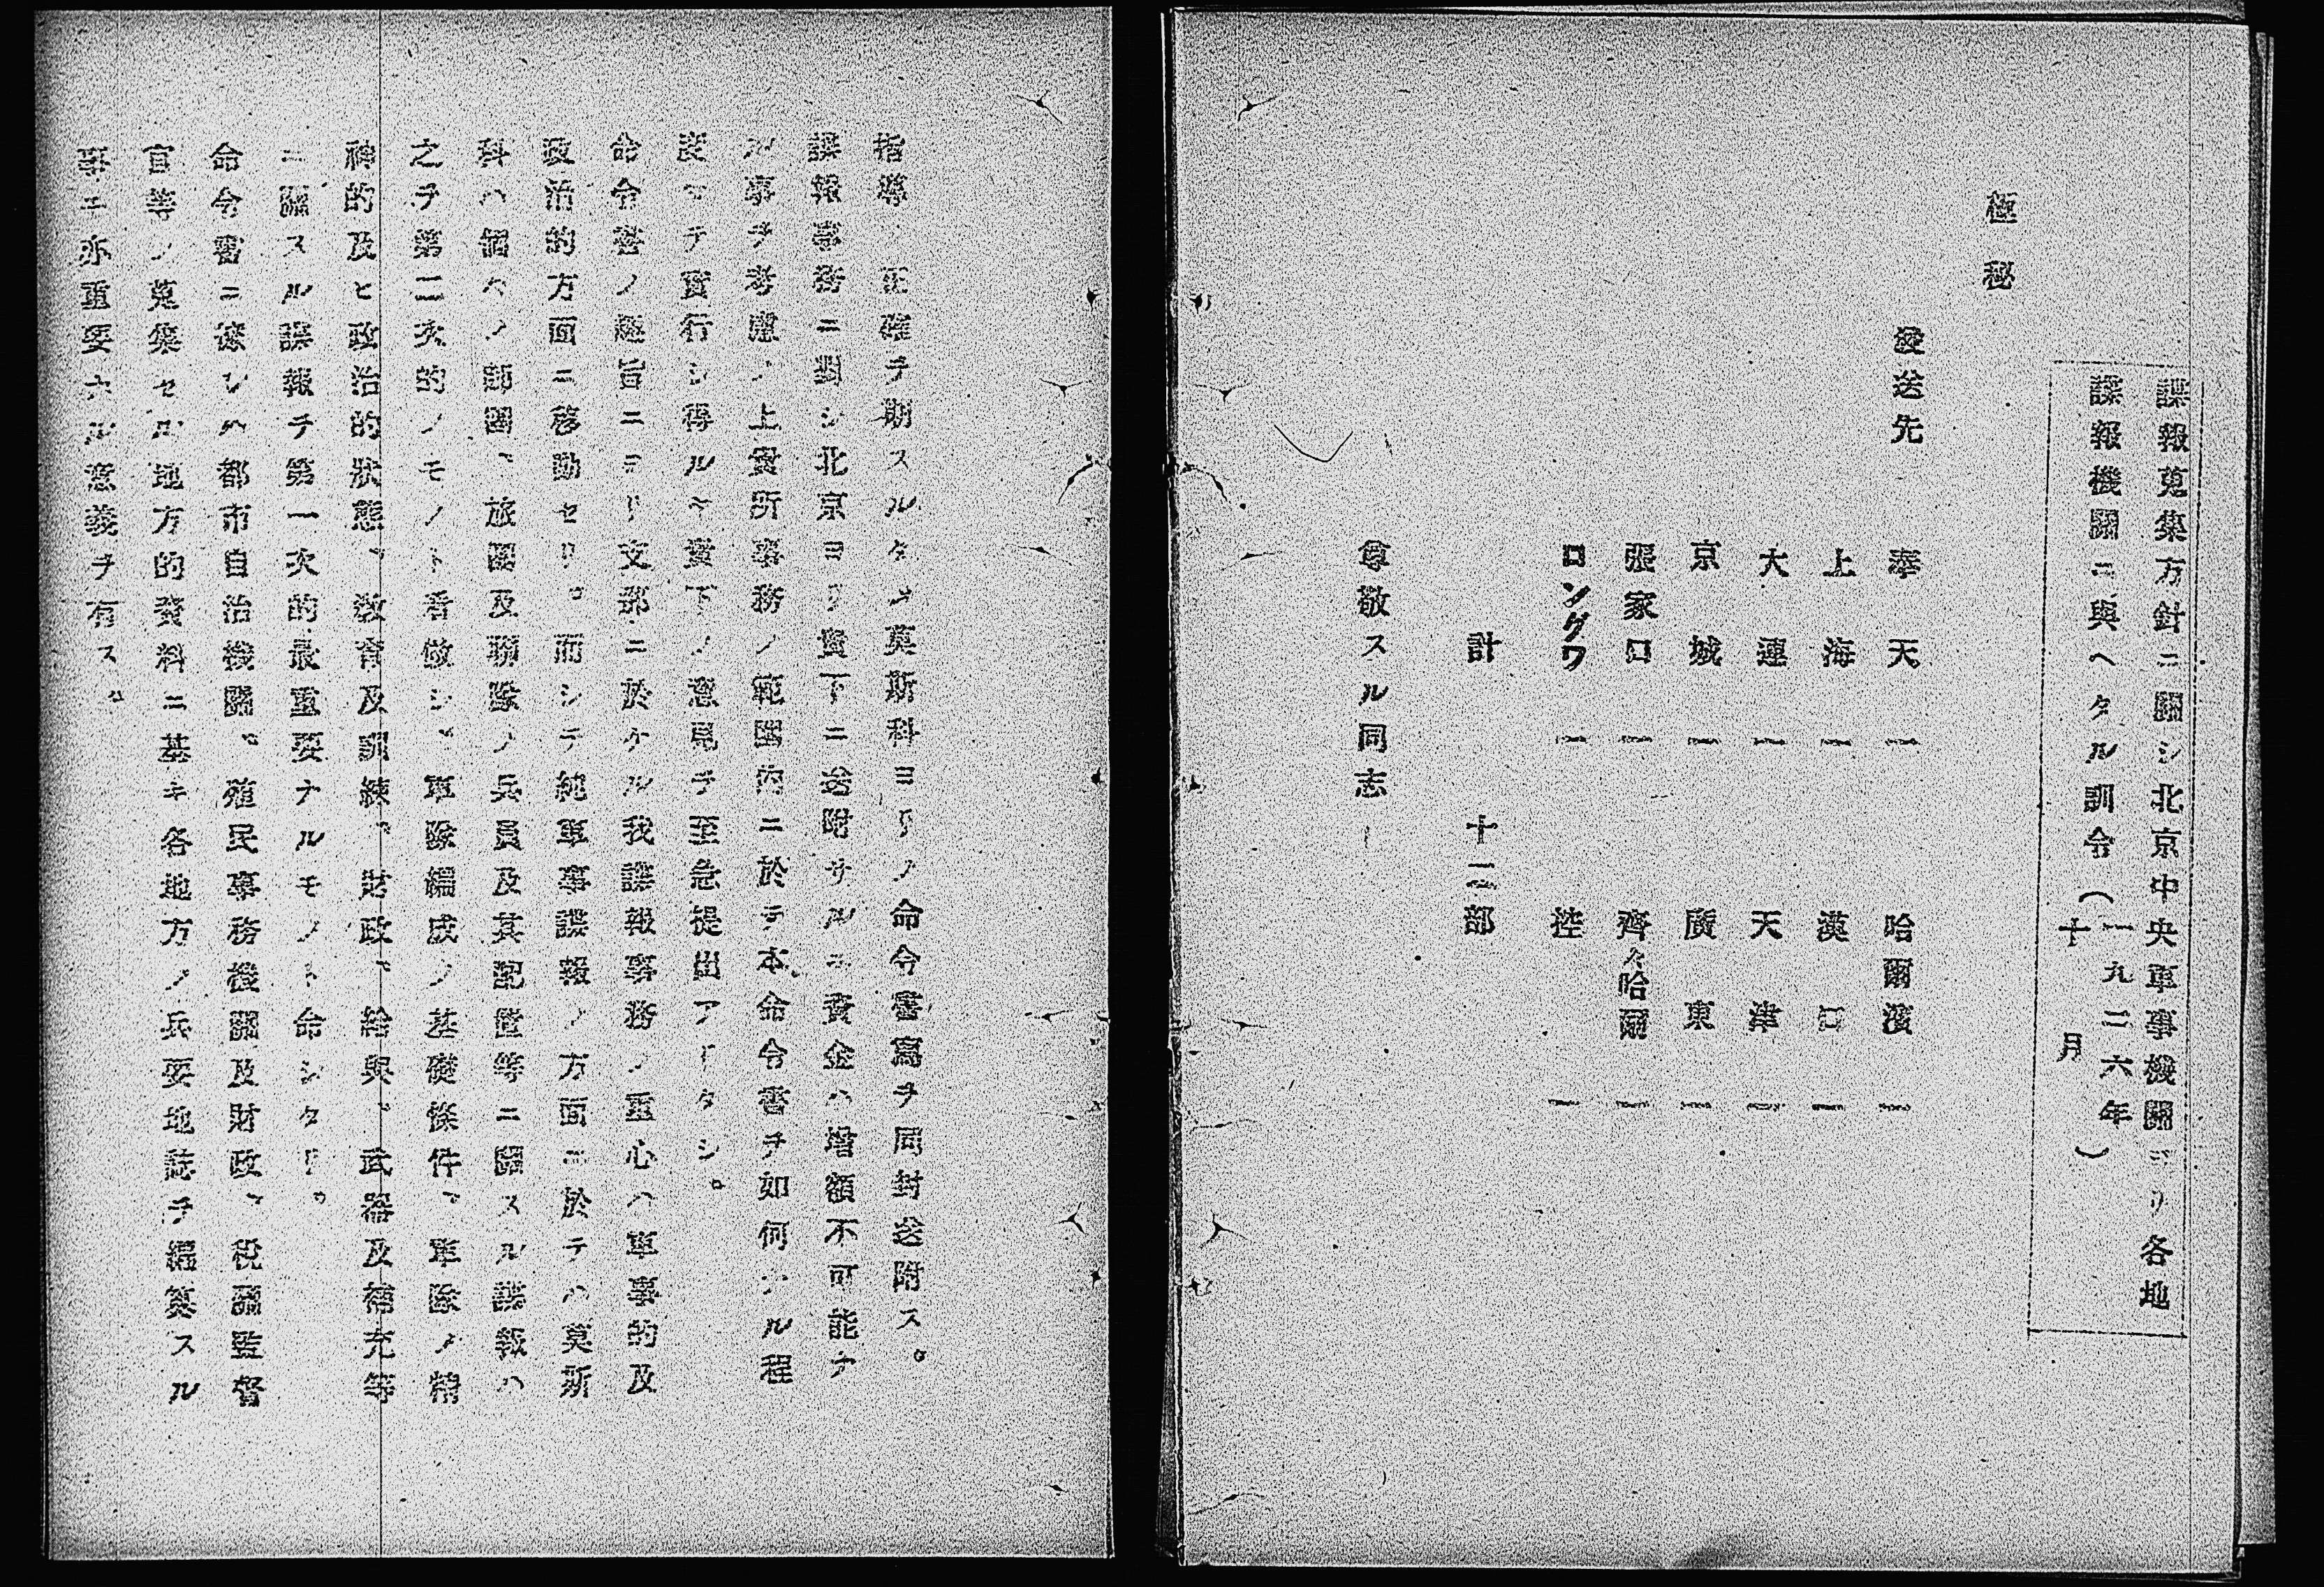 諜報蒐集方針ニ關シ北京中央軍事機關ヨリ各地
諜報機關ニ與ヘタル訓令(一九二六年十月)
極秘
發送先
奉天 一 哈爾濱 一
上海 一 漢口 一
大連 一 天津 一
京城 一 廣東 一
張家口 一 齊々哈爾 一
ロングワ 一 控 一
計 十二部
尊敬スル同志
指導ノ正確ヲ期スルタメ莫斯科ヨリノ命令書寫ヲ同封送附ス。
諜報事務ニ關シ北京ヨリ貴下ニ送附サルヽ資金ハ增額不可能ナ
ル事ヲ考慮ノ上貴所事務ノ範圍内ニ於テ本命令書ヲ如何ナル程
度マデ實行シ得ルヤ貴下ノ意見ヲ至急提出アリタシ。
命令書ノ趣旨ニヨリ支那ニ於ケル我諜報事務ノ重心ハ軍事的及
政治的方面ニ移動セリ。而シテ純軍事諜報ノ方面ニ於テハ莫斯
科ハ個々ノ師團、旅團及聯隊ノ兵員及其配置等ニ關スル諜報ハ
之ヲ第二次的ノモノト看做シ、軍隊編成ノ基礎條件、軍隊ノ精
神的及ヒ政治的狀態、敎育及訓練、財政、給與、武器及補充等
ニ關スル諜報ヲ第一次的最重要ナルモノト命シタリ。
命令書ニ依レハ都市自治機關、殖民事務機關及財政、稅關監督
官等ノ蒐集セル地方的資料ニ基キ各地方ノ兵要地誌ヲ編纂スル
事ニ亦重要ナル意義ヲ有ス。